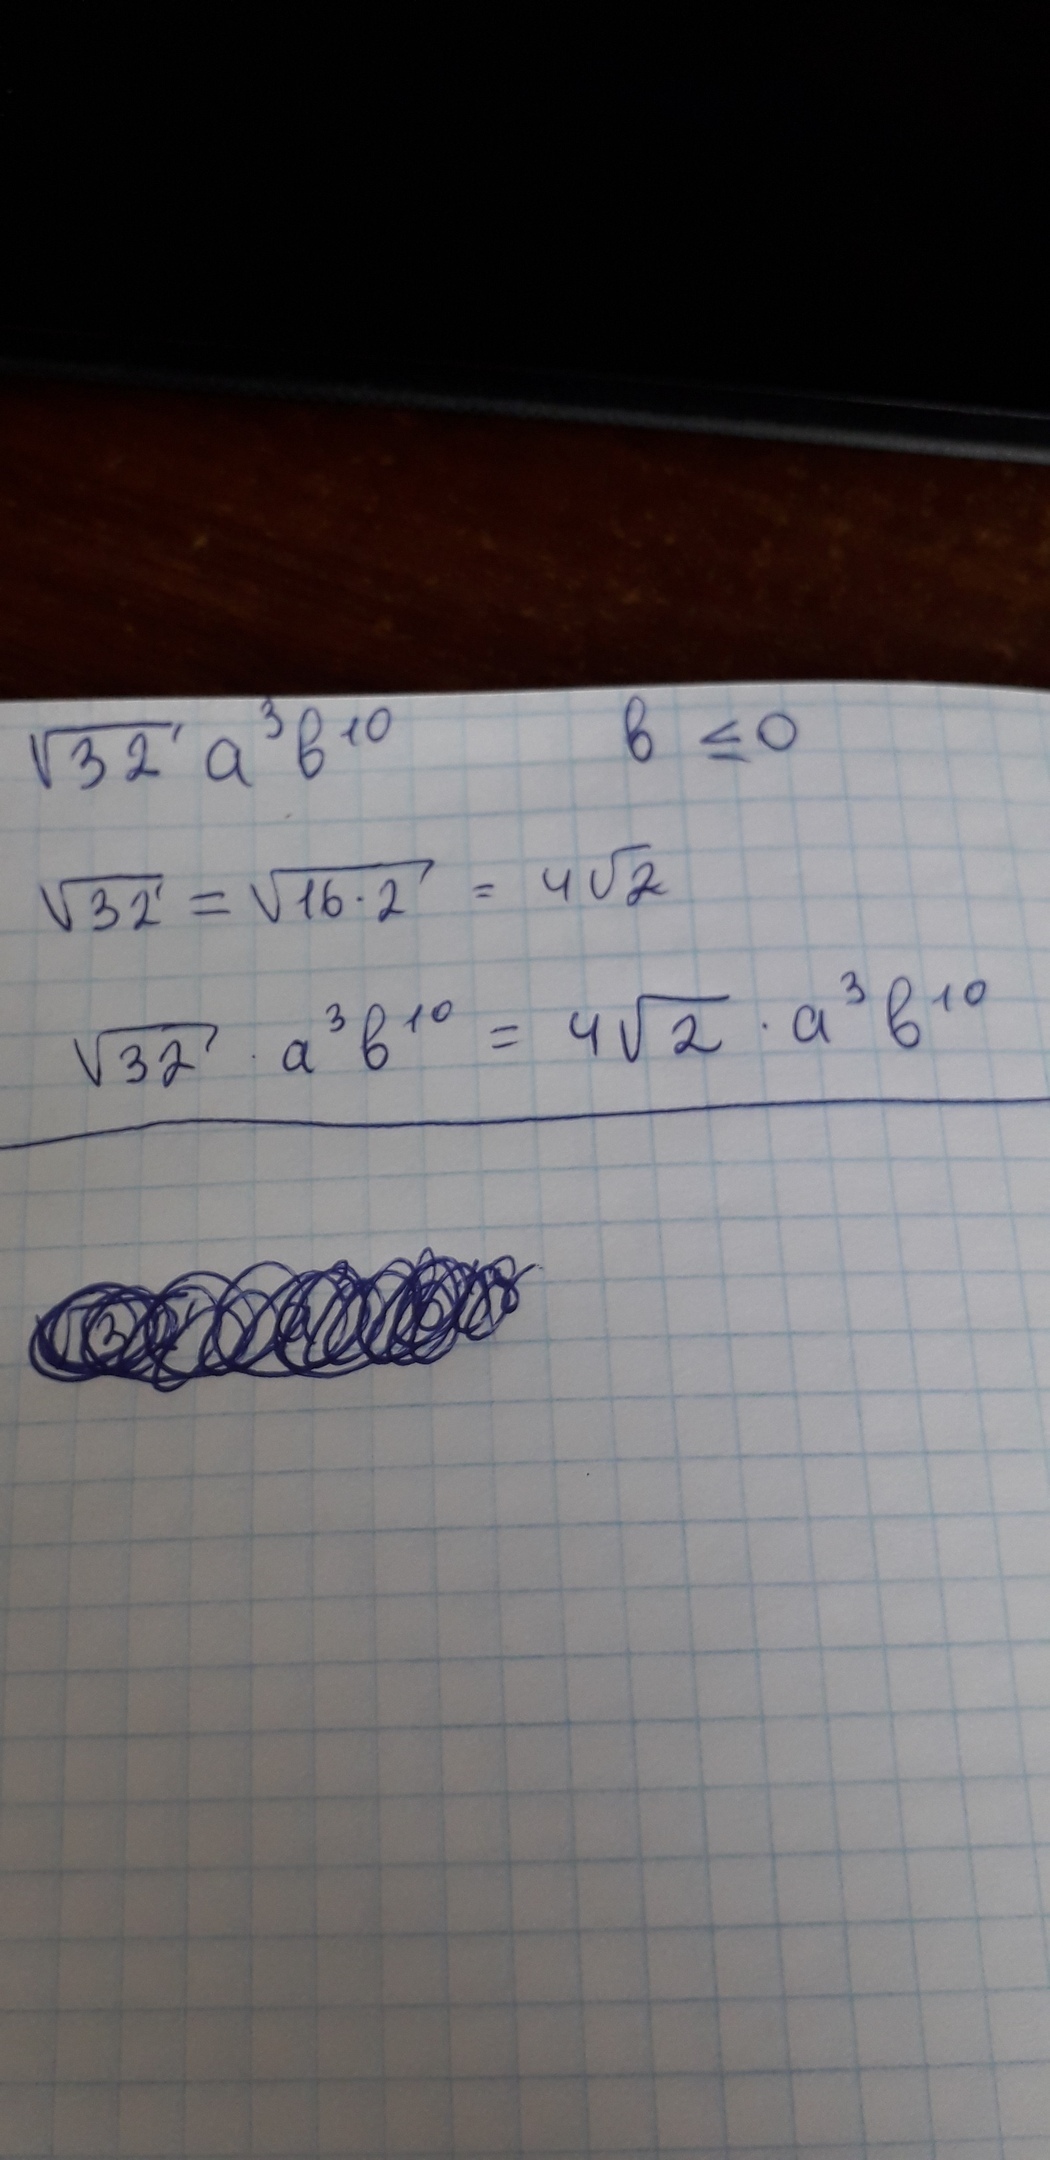 √32 a³b¹⁰ b ≤ 0
√32 = √16·2 = 4√2
√32 · a³b¹⁰ = 4√2 · a³b¹⁰